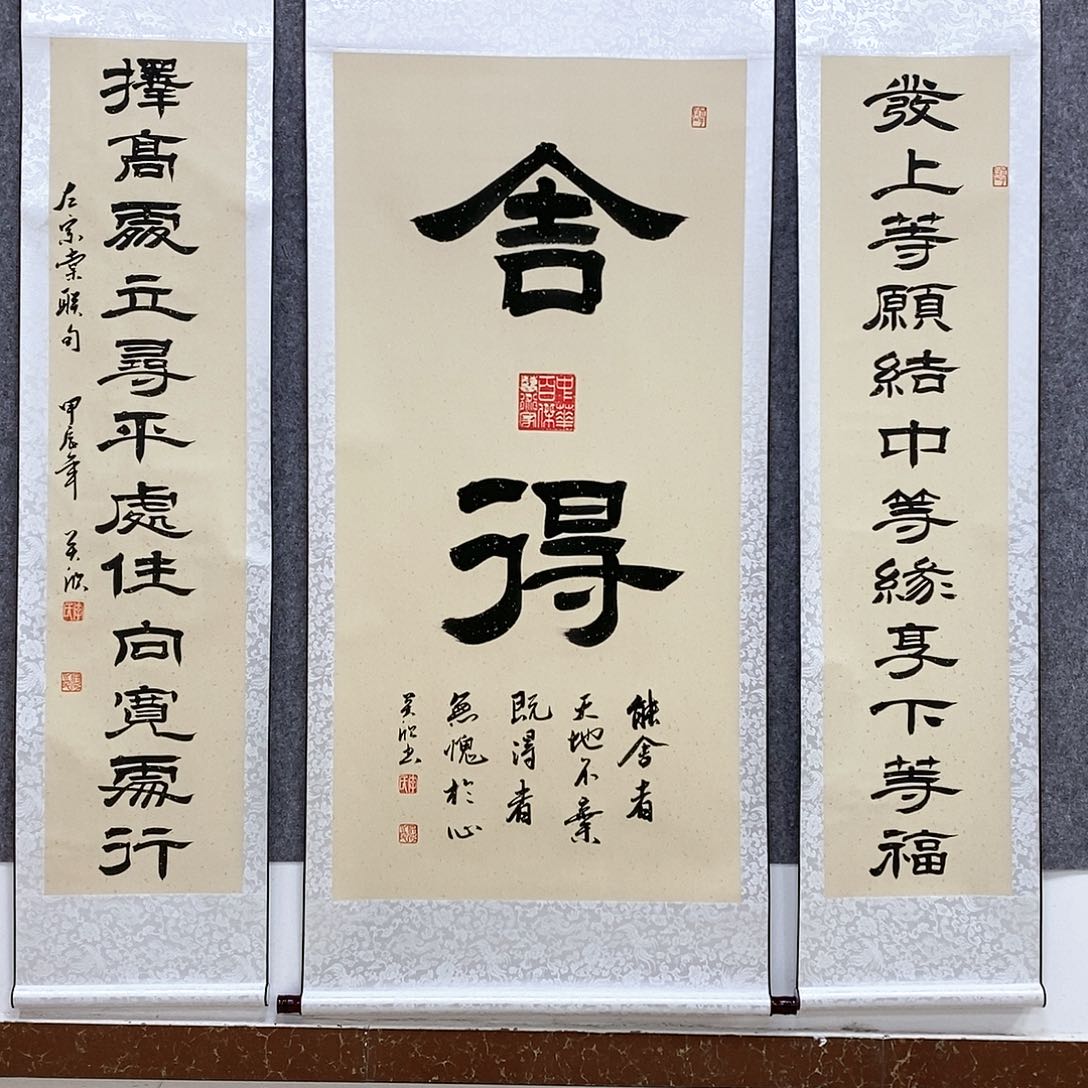 發上等願結中等緣享下等福
舍
中華
百傑
藝術家
得
能舍者
天地不棄
既得者
無愧於心
书
擇高處立尋平處住向寬處行
左宗棠联句 甲辰年